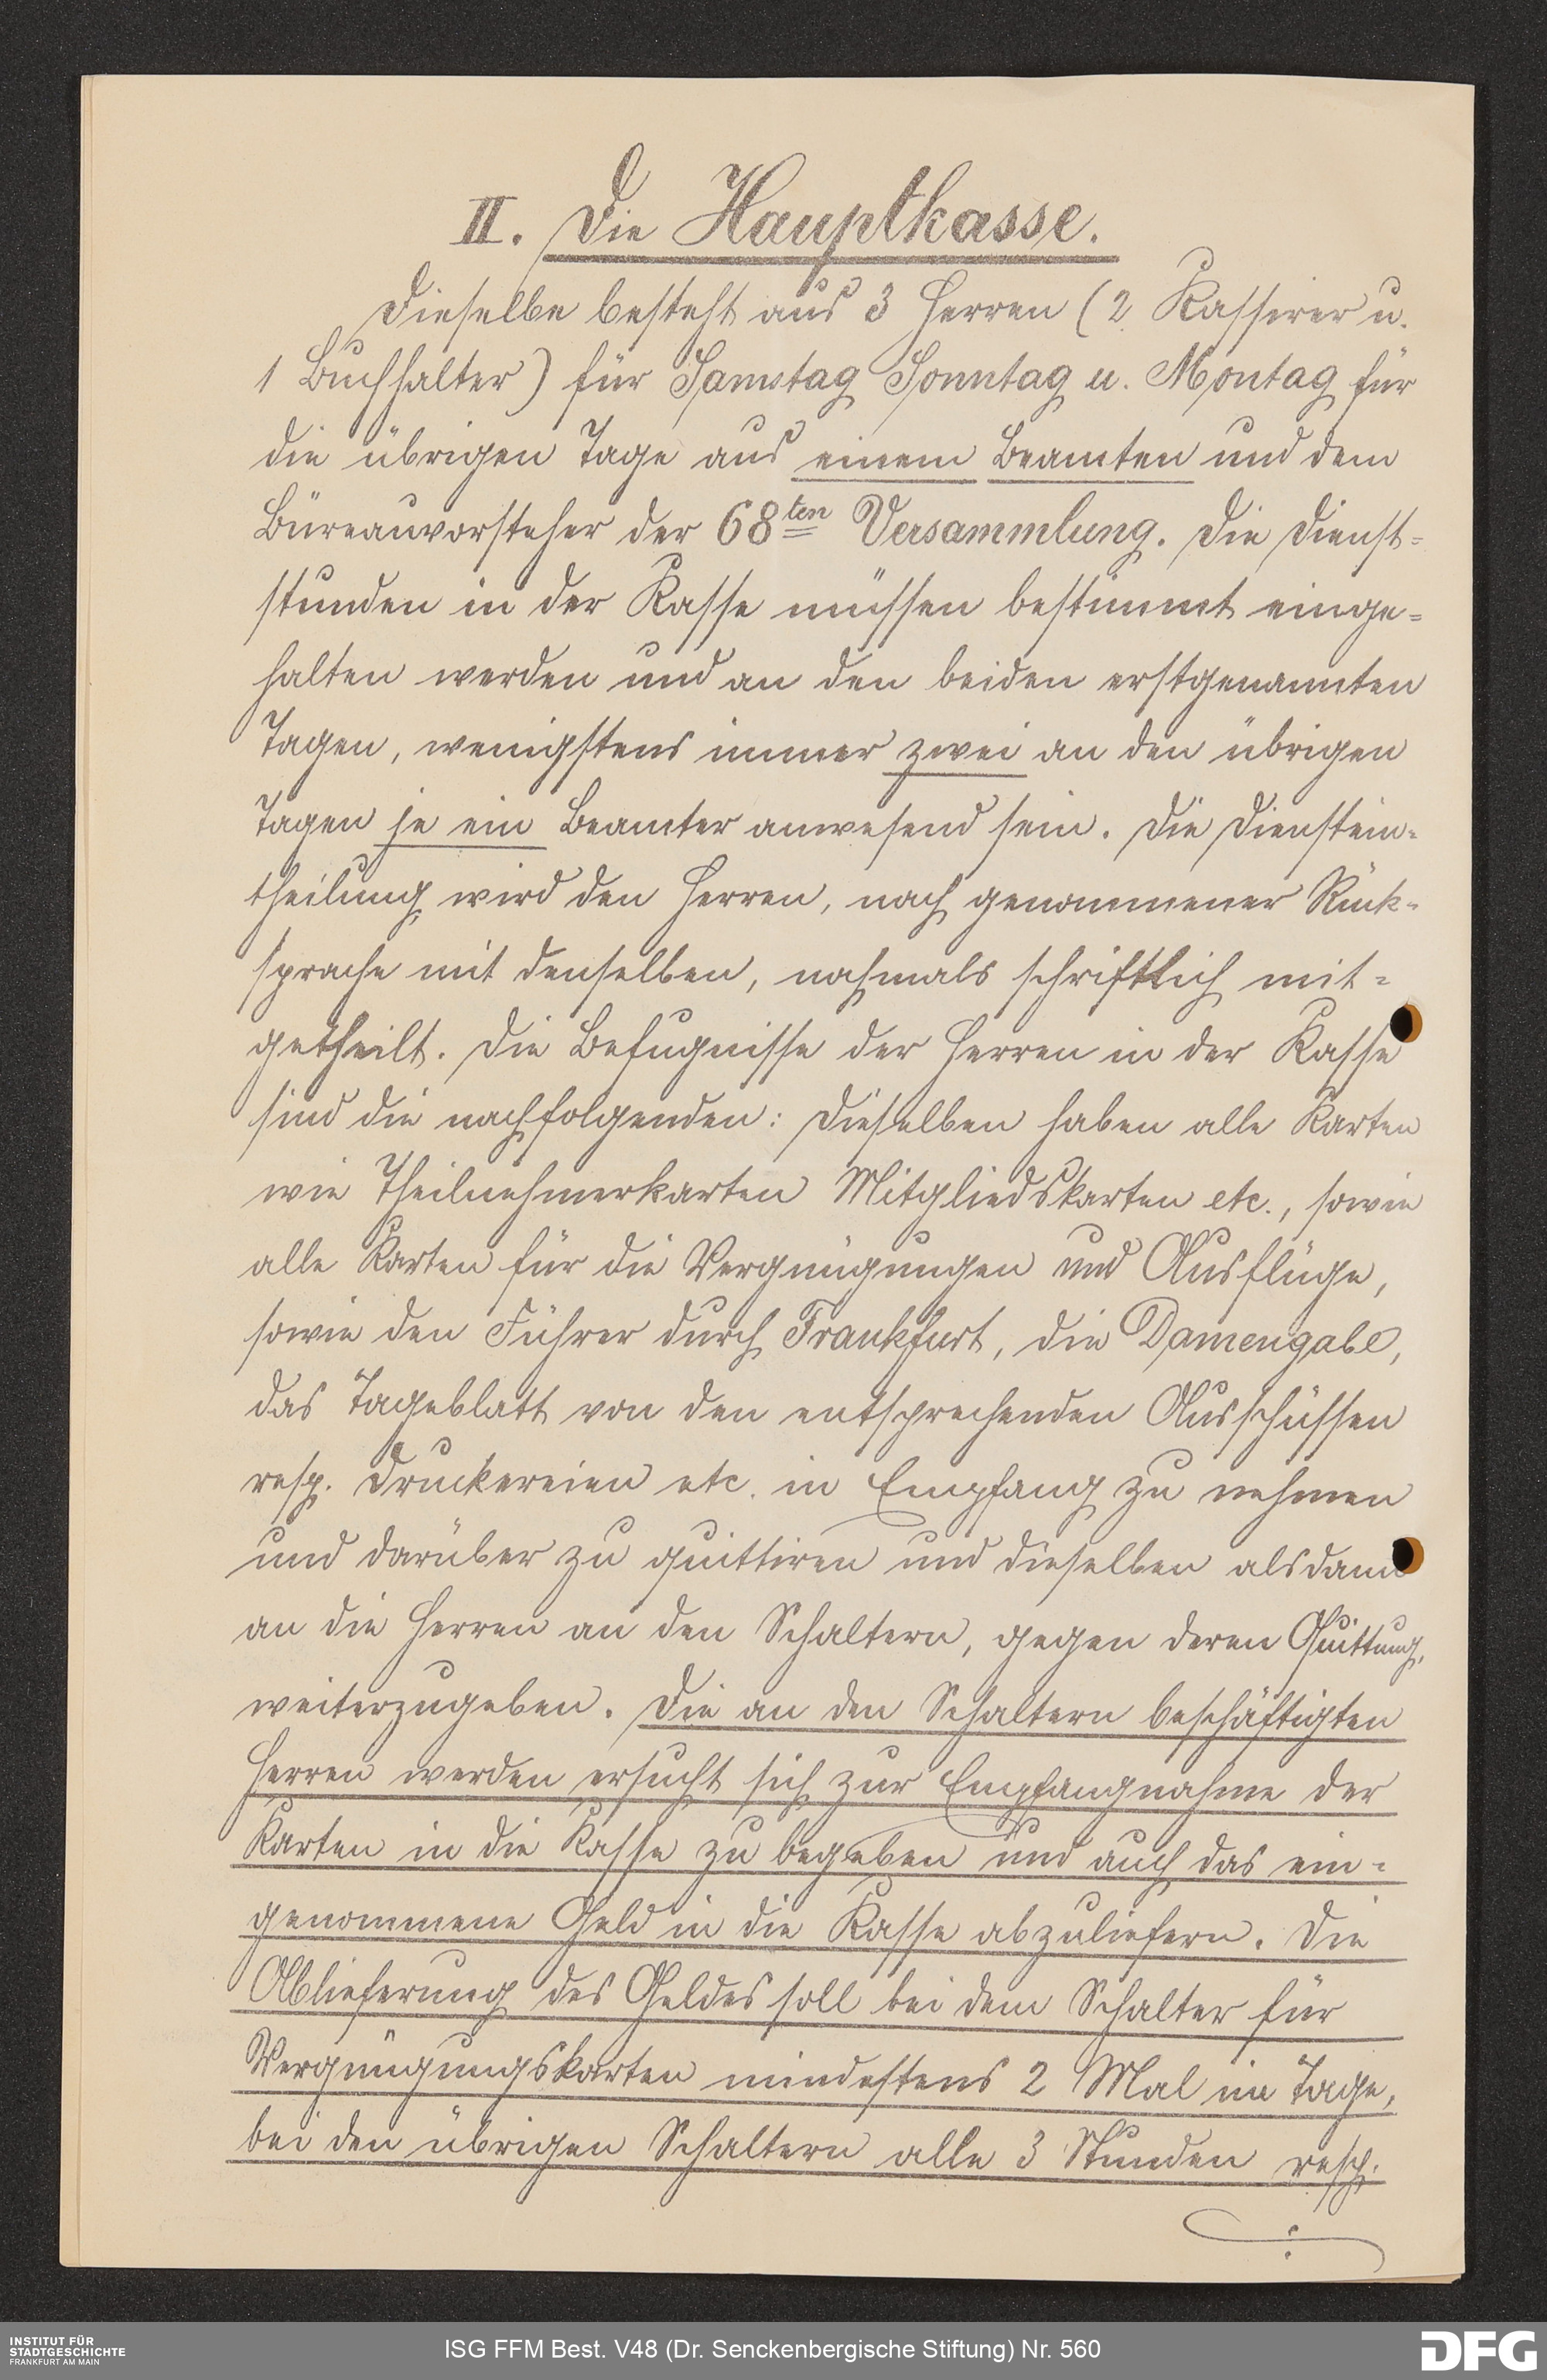 II. Die Hauptkasse.
Dieselbe besteht aus 3 Herren (2 Kassirer u.
1 Buchhalter) für Samstag Sonntag u. Montag für
die übrigen Tage aus einem Beamten und dem
Büreauvorsteher der 68ten Versammlung. Die Dienst=
stunden in der Kasse müssen bestimmt einge=
halten werden und an den beiden erstgenannten
Tagen, wenigstens immer zwei an den übrigen
Tagen je ein Beamter anwesend sein. Die Dienstein=
theilung wird den Herren, nach genommener Rück=
sprache mit denselben, nochmals schriftlich mit=
getheilt. Die Befugnisse der Herren in der Kasse
sind die nachfolgenden: Dieselben haben alle Karten
wie Theilnehmerkarten Mitgliedskarten etc., sowie
alle Karten für die Vergnügungen und Ausflüge,
sowie den Führer durch Frankfurt, die Damengabe,
das Tageblatt von den entsprechenden Ausschüssen
resp. Druckereien etc. in Empfang zu nehmen
und darüber zu quittiren und dieselben alsdann
an die Herren an den Schaltern, gegen deren Quittung,
weiterzugeben. Die an den Schaltern beschäftigten
Herren werden ersucht sich zur Empfangnahme der
Karten in die Kasse zu begeben und auch das ein=
genommene Geld in die Kasse abzuliefern. Die
Ablieferung des Geldes soll bei dem Schalter für
Vergnügungskarten mindestens 2 Mal im Tage,
bei den übrigen Schaltern alle 3 Stunden resp.
INSTITUT FÜR
STADTGESCHICHTE
FRANKFURT AM MAIN
ISG FFM Best. V48 (Dr. Senckenbergische Stiftung) Nr. 560
DFG